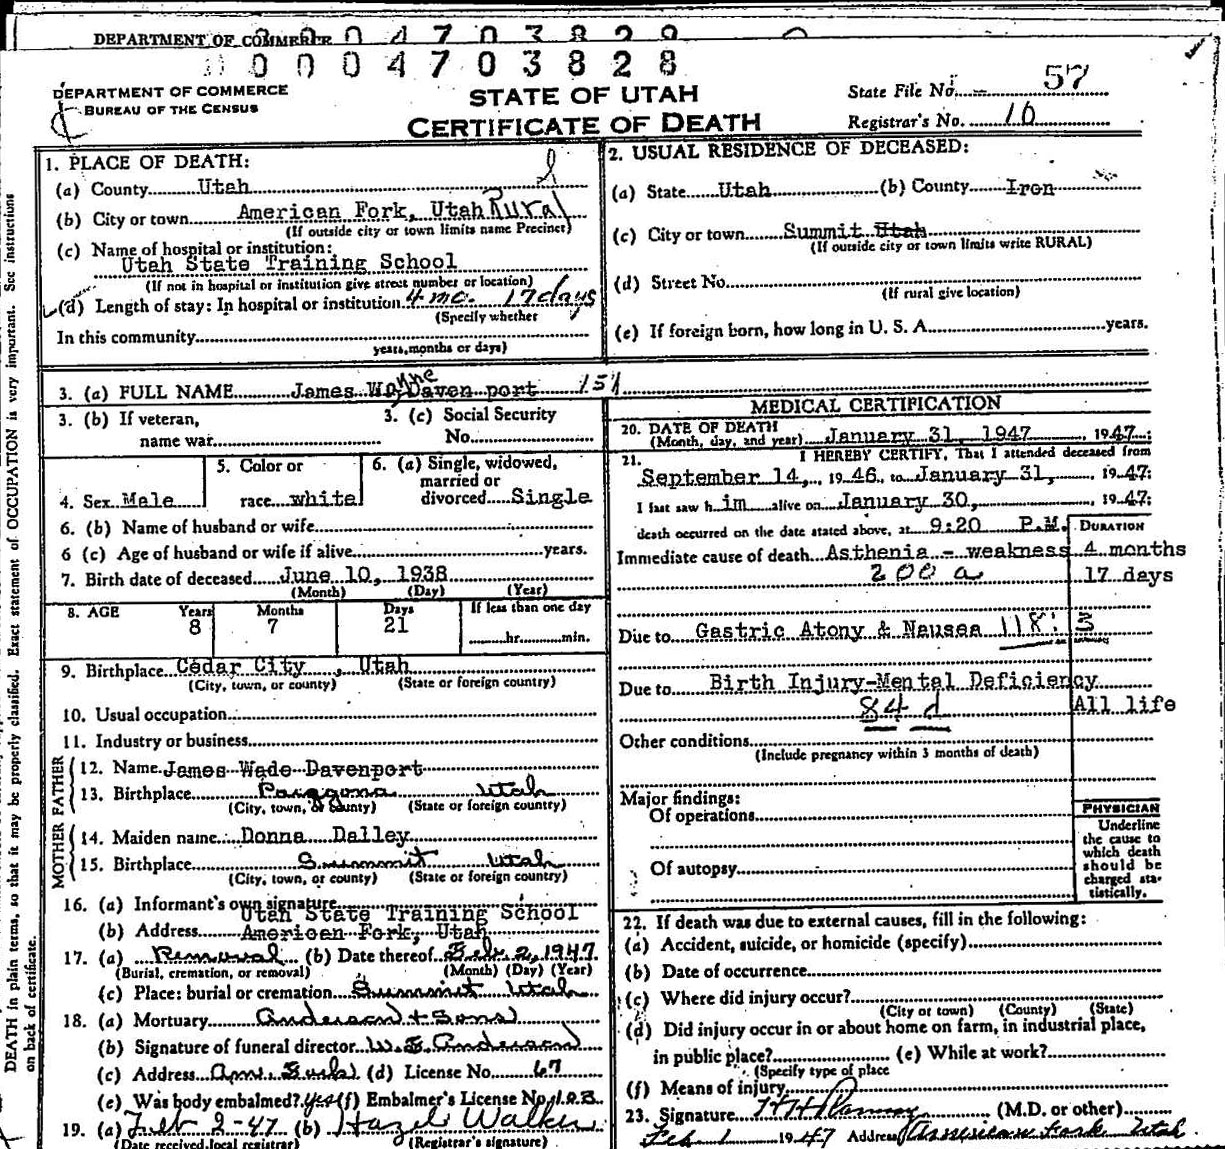 DEPARTMENT OF COMMERCE 0 4 7 0 3 8 2 9
0 0 0 4 7 0 3 8 2 8
DEPARTMENT OF COMMERCE
BUREAU OF THE CENSUS
STATE OF UTAH
CERTIFICATE OF DEATH
State File No. 57
Registrar's No. 10
1. PLACE OF DEATH:
(a) County Utah
(b) City or town American Fork, Utah Rural
(If outside city or town limits name Precinct)
(c) Name of hospital or institution:
Utah State Training School
(If not in hospital or institution give street number or location)
(d) Length of stay: In hospital or institution 4 mo. 17 days
(Specify whether
In this community
years, months or days)
2. USUAL RESIDENCE OF DECEASED:
(a) State Utah (b) County Iron
(c) City or town Summit Utah
(If outside city or town limits write RURAL)
(d) Street No.
(If rural give location)
(e) If foreign born, how long in U. S. A. years.
3. (a) FULL NAME James Wayne Davenport 151
3. (b) If veteran,
name war
3. (c) Social Security
No.
4. Sex Male
5. Color or
race white
6. (a) Single, widowed,
married or
divorced Single
6. (b) Name of husband or wife
6 (c) Age of husband or wife if alive years.
7. Birth date of deceased June 10, 1938
(Month) (Day) (Year)
8. AGE Years Months Days If less than one day
8 7 21 hr. min.
9. Birthplace Cedar City, Utah
(City, town, or county) (State or foreign country)
10. Usual occupation
11. Industry or business
FATHER
12. Name James Wade Davenport
13. Birthplace Paragona Utah
(City, town, or county) (State or foreign country)
MOTHER
14. Maiden name Donna Dalley
15. Birthplace Summit Utah
(City, town, or county) (State or foreign country)
16. (a) Informant's own signature
Utah State Training School
(b) Address American Fork, Utah
17. (a) Removal (b) Date thereof Feb. 2, 1947
(Burial, cremation, or removal) (Month) (Day) (Year)
(c) Place: burial or cremation Summit Utah
18. (a) Mortuary Anderson & Sons
(b) Signature of funeral director W. E. Anderson
(c) Address Am. Fork (d) License No. 67
(e) Was body embalmed? Yes (f) Embalmer's License No.
19. (a) Feb 2-47 (b) Hazel Walker
(Date received local registrar) (Registrar's signature)
MEDICAL CERTIFICATION
20. DATE OF DEATH
(Month, day, and year) January 31, 1947, 1947:
21. I HEREBY CERTIFY, That I attended deceased from
September 14,, 1946, to January 31,, 1947:
I last saw him alive on January 30,, 1947:
death occurred on the date stated above, at 9:20 P.M. DURATION
Immediate cause of death Asthenia - weakness 4 months
200 a 17 days
Due to Gastric Atony & Nausea 118: 3
Due to Birth Injury-Mental Deficiency
84 d All life
Other conditions
(Include pregnancy within 3 months of death)
Major findings:
Of operations
Of autopsy
PHYSICIAN
Underline
the cause to
which death
should be
charged sta-
tistically.
22. If death was due to external causes, fill in the following:
(a) Accident, suicide, or homicide (specify)
(b) Date of occurrence
(c) Where did injury occur?
(City or town) (County) (State)
(d) Did injury occur in or about home on farm, in industrial place,
in public place? (e) While at work?
(Specify type of place
(f) Means of injury
23. Signature (M.D. or other)
Feb 1 1947 Address American Fork Utah
DEATH in plain terms, so that it may be properly classified. Exact statement of OCCUPATION is very important. See instructions
on back of certificate.